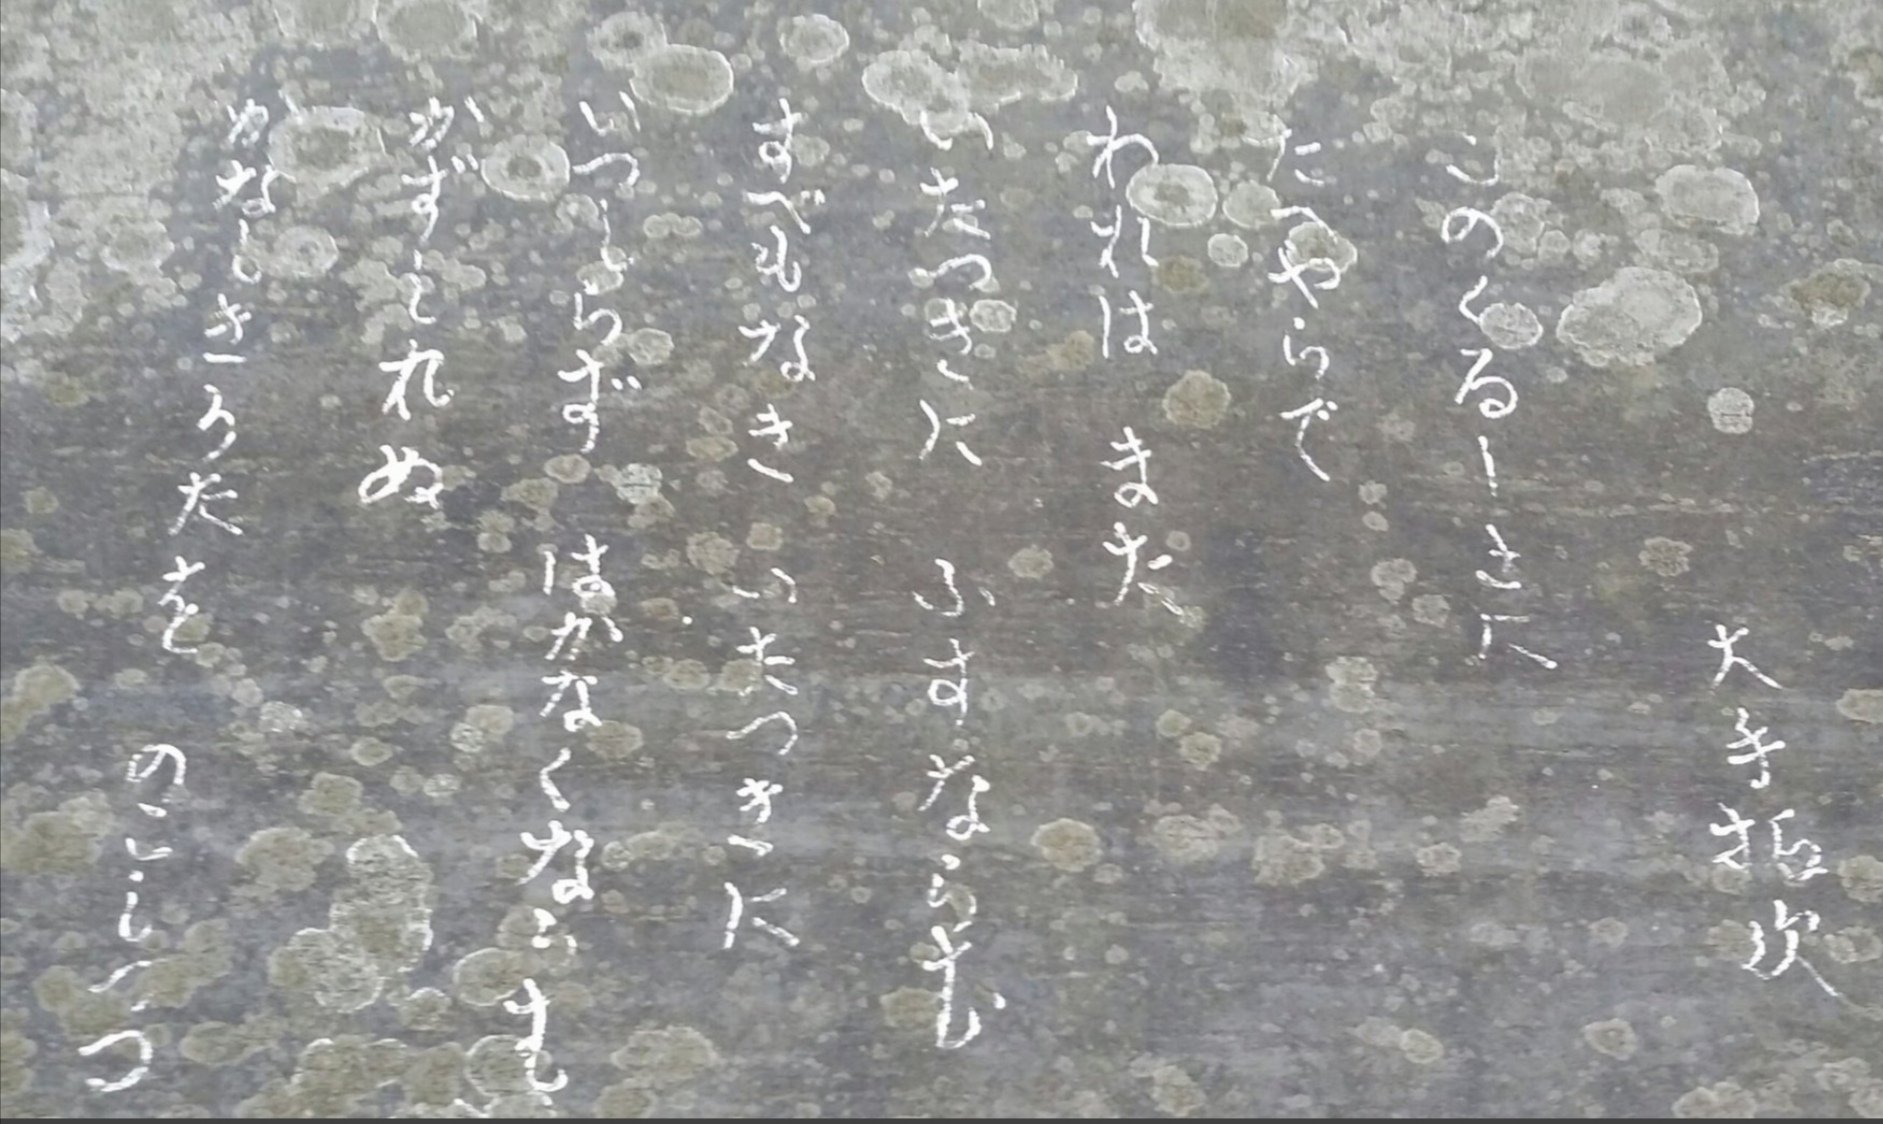 大手拓次
このくるしきに
たへやらで
われは また
いたつきに ふすならむ
すべもなき いたつきに
いつしらず はかなくならむ
かずしれぬ
かなしきうたを のこしつつ